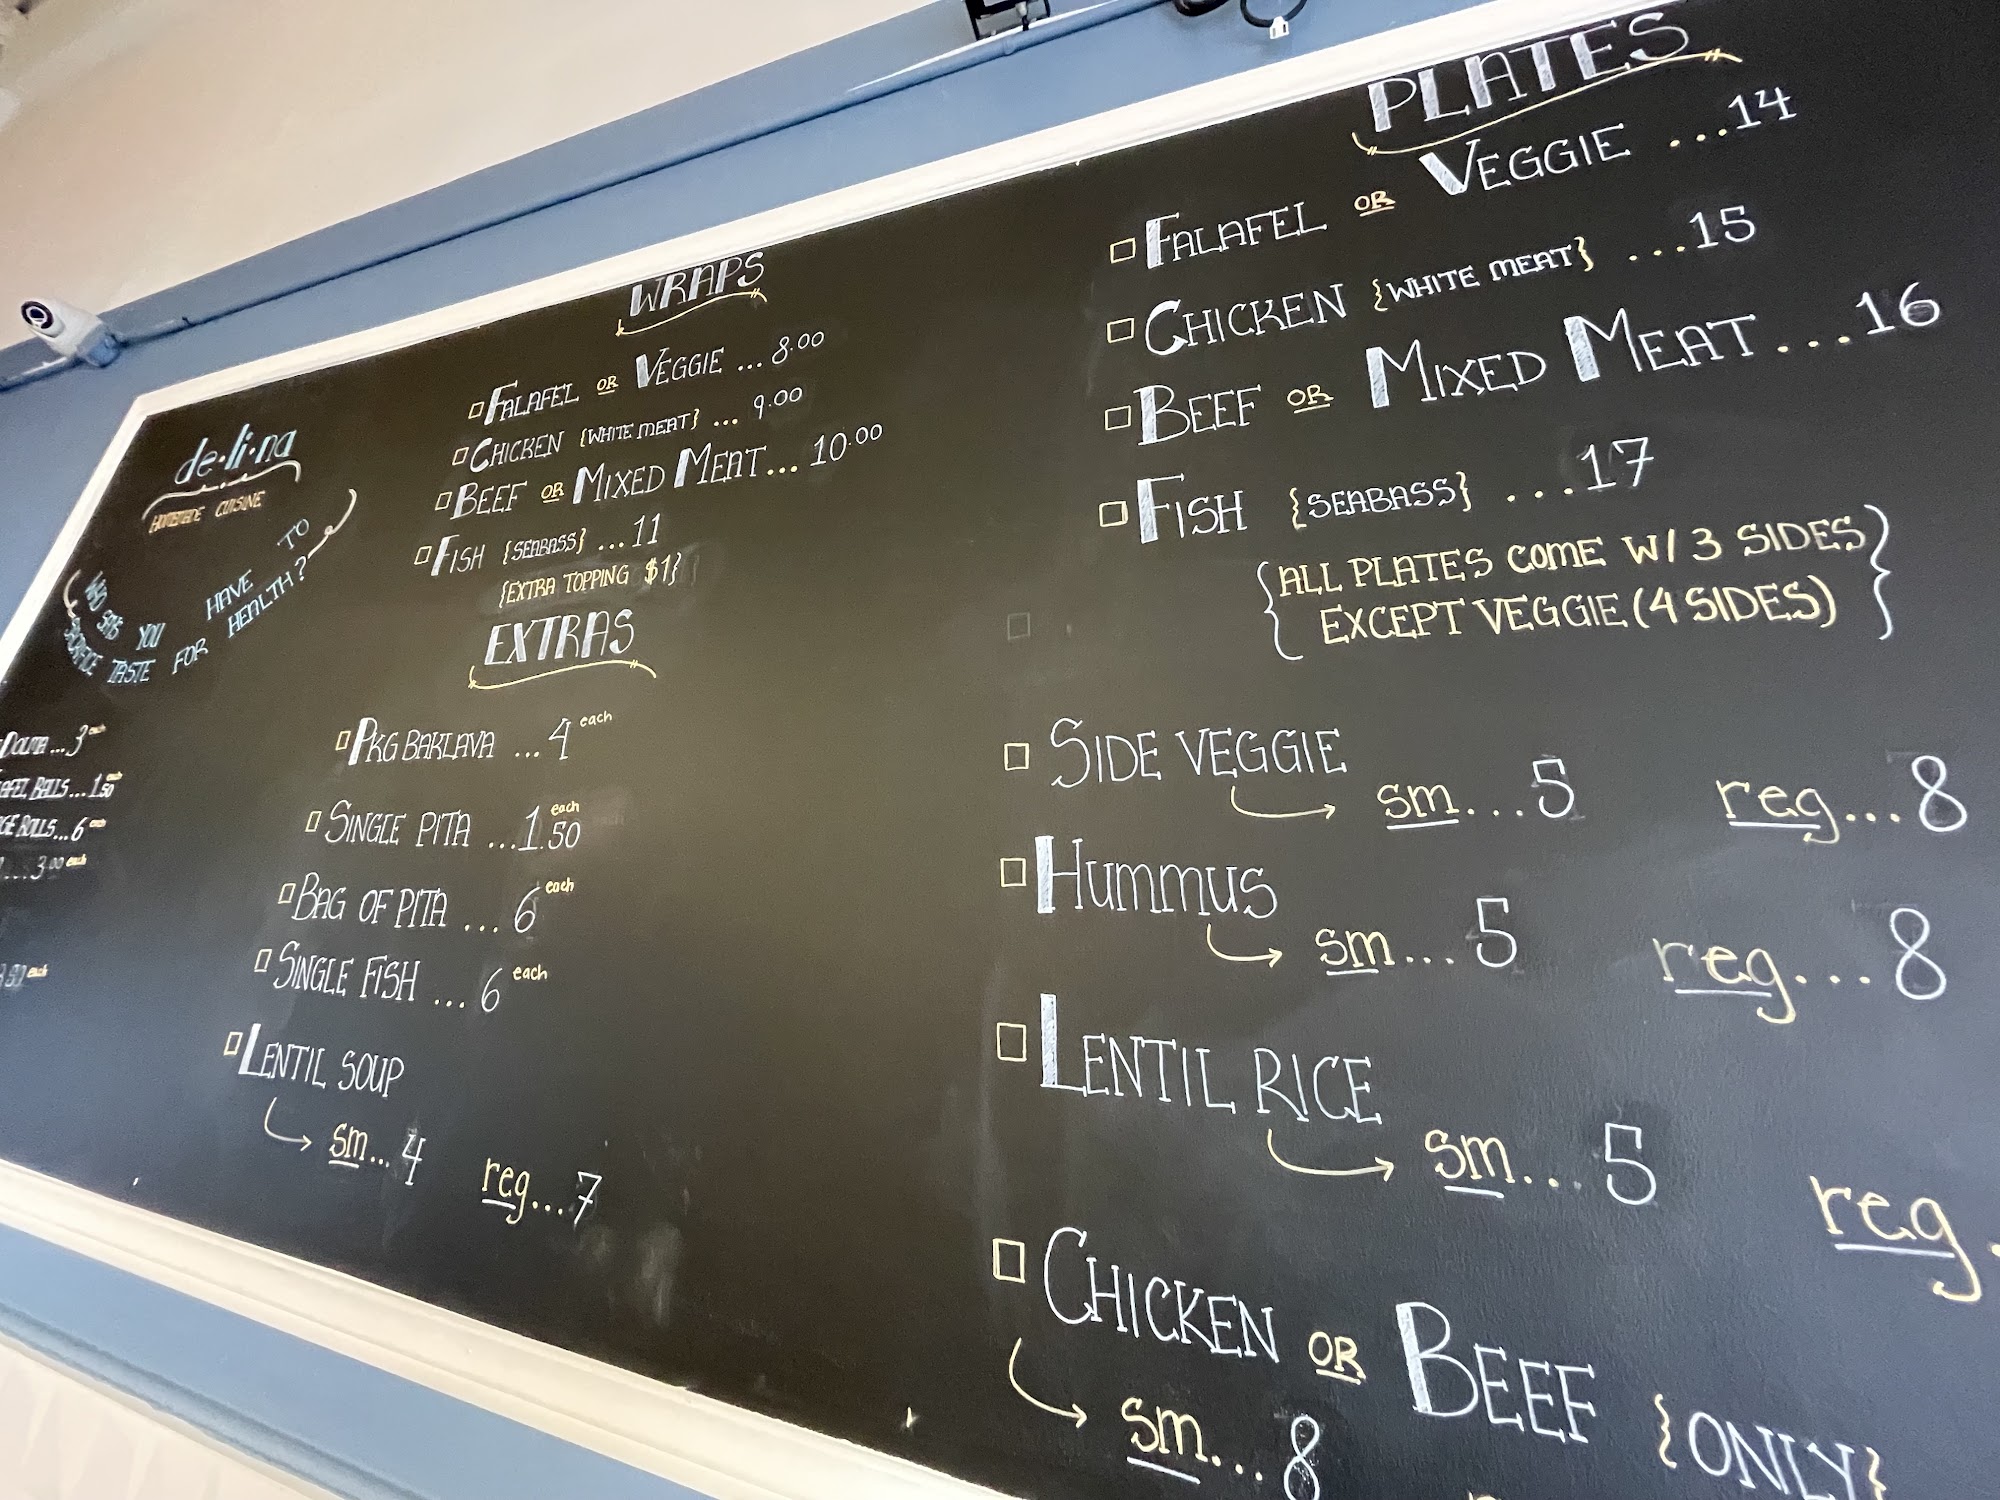 de·li·na
HOMEMADE CUISINE
WHO SAYS YOU HAVE TO
SACRIFICE TASTE FOR HEALTH?
DOLMA...3 each
BALLS...1.50 each
ROLLS...6 each
...3.00 each
each
WRAPS
FALAFEL OR VEGGIE ... 8.00
CHICKEN {WHITE MEAT} ... 9.00
BEEF OR MIXED MEAT... 10.00
FISH {SEABASS} ...11
{EXTRA TOPPING $1}
EXTRAS
PKG BAKLAVA ...4 each
SINGLE PITA ...1.50 each
BAG OF PITA ...6 each
SINGLE FISH ...6 each
LENTIL SOUP
sm...4 reg...7
PLATES
FALAFEL OR VEGGIE ...14
CHICKEN {WHITE MEAT} ...15
BEEF OR MIXED MEAT...16
FISH {SEABASS} ...17
{ALL PLATES COME W/ 3 SIDES
EXCEPT VEGGIE (4 SIDES)}
SIDE VEGGIE
sm...5 reg...8
HUMMUS
sm...5 reg...8
LENTIL RICE
sm...5 reg.
CHICKEN OR BEEF {ONLY}
sm...8